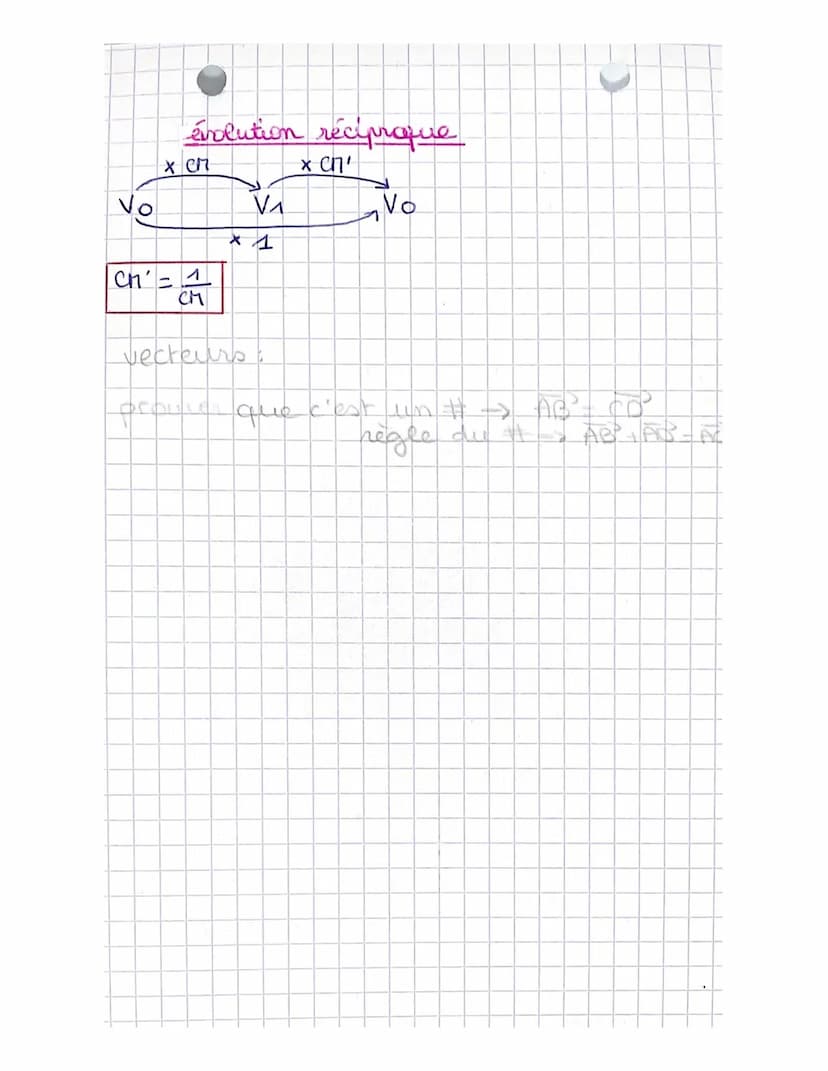 évolution réciproque
x CM x CM'
V0 V1 V0
x 1
CM' = 1/CM
vecteurs :
prouver que c'est un # → AB⃗ = CD⃗
règle du # → AB⃗ + AD⃗ = AC